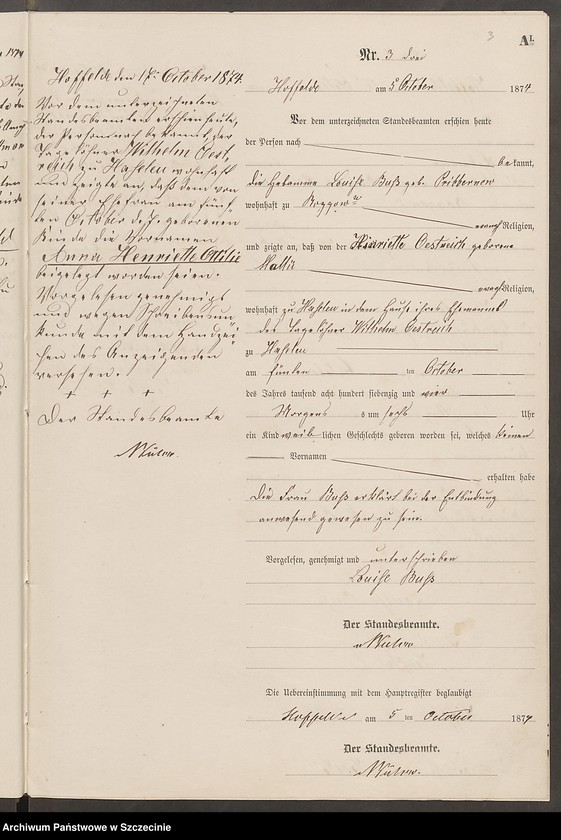 3
A1.
Nr. 3 drei
Hoffelde am 5 October 1874
Vor dem unterzeichneten Standesbeamten erschien heute
der Person nach bekannt,
die Hebamme Louise Buß geb. Pribbernow
wohnhaft zu Roggow
evangl Religion,
und zeigte an, daß von der Henriette Oestreich geborene
evangl Religion,
wohnhaft zu Haseleu in dem Hause ihres Ehemannes
des Tagelöhner Wilhelm Oestreich
zu Haseleu
am fünften ten October
des Jahres tausend acht hundert siebenzig und vier
Morgens um sechs Uhr
ein Kind weiblichen Geschlechts geboren worden sei, welches keinen
Vornamen
erhalten habe
Die Frau Buß erklärt bei der Entbindung
anwesend gewesen zu sein.
Vorgelesen, genehmigt und unterschrieben
Louise Buß
Der Standesbeamte.
Die Uebereinstimmung mit dem Hauptregister beglaubigt
Hoffelde am 5 ten October 1874
Der Standesbeamte.
Hoffelde den 17. October 1874.
Vor dem unterzeichneten
Standesbeamten erschien heute,
der Person nach bekannt, der
Tagelöhner Wilhelm Oest,
reich zu Haseleu wohnhaft
und zeigte an, daß dem von
seiner Ehefrau am fünf
ten October d. J. geborenen
Kinde die Vornamen
Anna Henriette Ottilie
beigelegt worden seien.
Vorgelesen genehmigt
und wegen Schreibensun
kunde mit dem Handzei
chen des Anzeigenden
versehen.
+ + +
Der Standesbeamte
Archiwum Państwowe w Szczecinie